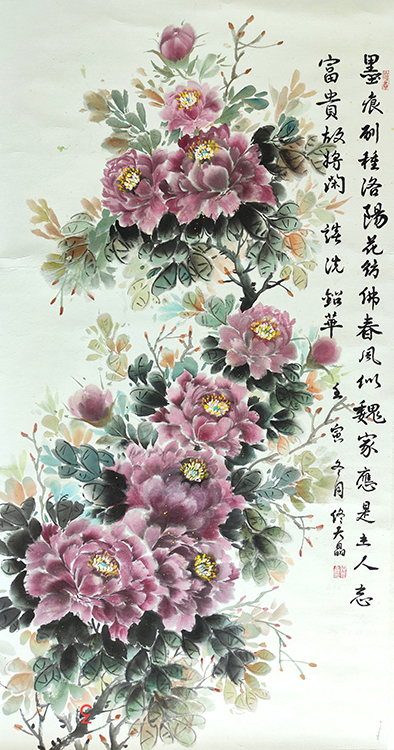 墨痕别種洛陽花彷佛春風似魏家應是主人志
富貴故將閑談洗鉛華
壬寅冬月佟天晶